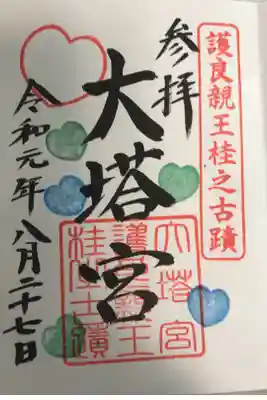 護良親王桂之古蹟
参拝
大塔宮
令和元年八月二十七日
大塔宮
護良親王
桂之古蹟